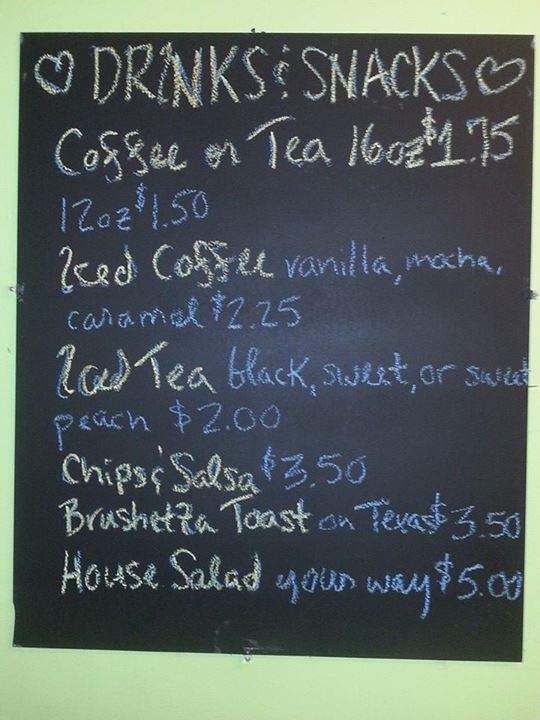 ♡ DRINKS & SNACKS ♡
Coffee or Tea 16oz $1.75
12oz $1.50
Iced Coffee vanilla, mocha,
caramel $2.25
Iced Tea black, sweet, or sweet
peach $2.00
Chips & Salsa $3.50
Brushetta Toast on Texas $3.50
House Salad your way $5.00